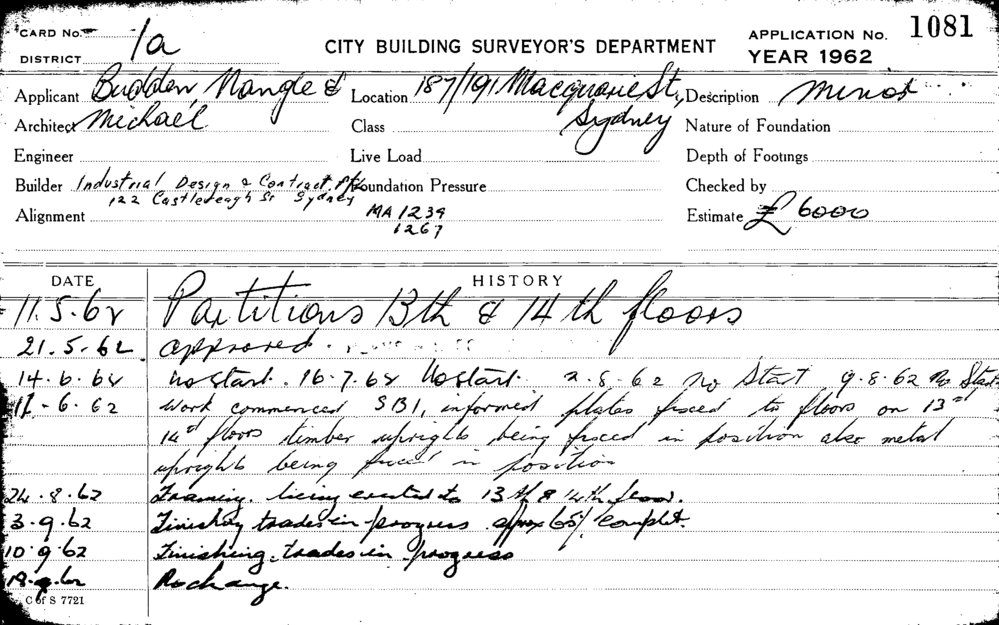 CARD No. 1a
DISTRICT
CITY BUILDING SURVEYOR'S DEPARTMENT
APPLICATION No. 1081
YEAR 1962
Applicant Budden, Nangle &
Location 187/191 Macquarie St,
Description minor
Architect Michael
Class Sydney
Nature of Foundation
Engineer
Live Load
Depth of Footings
Builder Industrial Design & Contract. Pty
Foundation Pressure
Checked by
122 Castlereagh St Sydney
Alignment
MA 1239
1267
Estimate £6000
DATE
HISTORY
11.5.62 Partitions 13th & 14th floors
21.5.62 approved.
14.6.62 no start. 16.7.62 No start. 2.8.62 No Start 9.8.62 No Start
6.62 Work commenced SB1, informed plates fixed to floors on 13th
14th floors timber uprights being fixed in position also metal
uprights being fixed in position
24.8.62 Framing. being erected to 13th & 14th floor.
3.9.62 Finishing trades in progress approx 65% complet.
10.9.62 Finishing trades in progress
18.9.62 No change.
C of S 7721